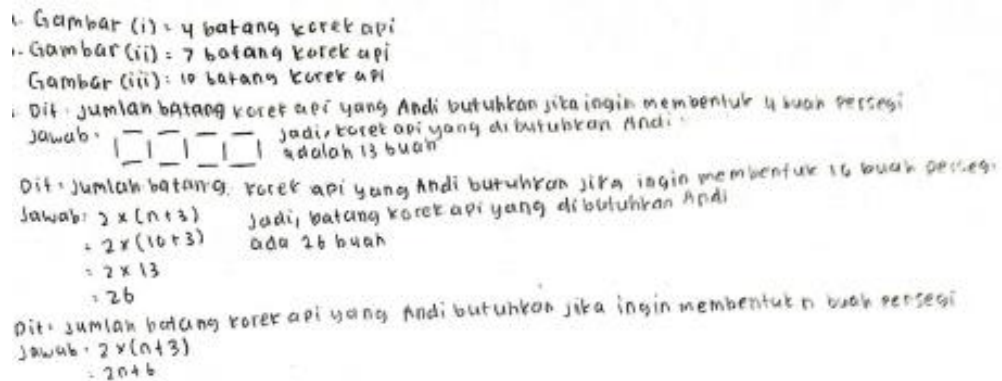 Gambar (i) : 4 batang korek api
Gambar (ii) : 7 batang korek api
Gambar (iii) : 10 batang korek api
Dit : Jumlah batang korek api yang Andi butuhkan jika ingin membentuk 4 buah persegi
Jawab : Jadi, korek api yang dibutuhkan Andi
adalah 13 buah
Dit : Jumlah batang korek api yang Andi butuhkan jika ingin membentuk 10 buah persegi
Jawab : 2 x (n+3) Jadi, batang korek api yang dibutuhkan Andi
= 2 x (10+3) ada 26 buah
= 2 x 13
= 26
Dit : Jumlah batang korek api yang Andi butuhkan jika ingin membentuk n buah persegi
Jawab : 2 x (n+3)
= 2n+6